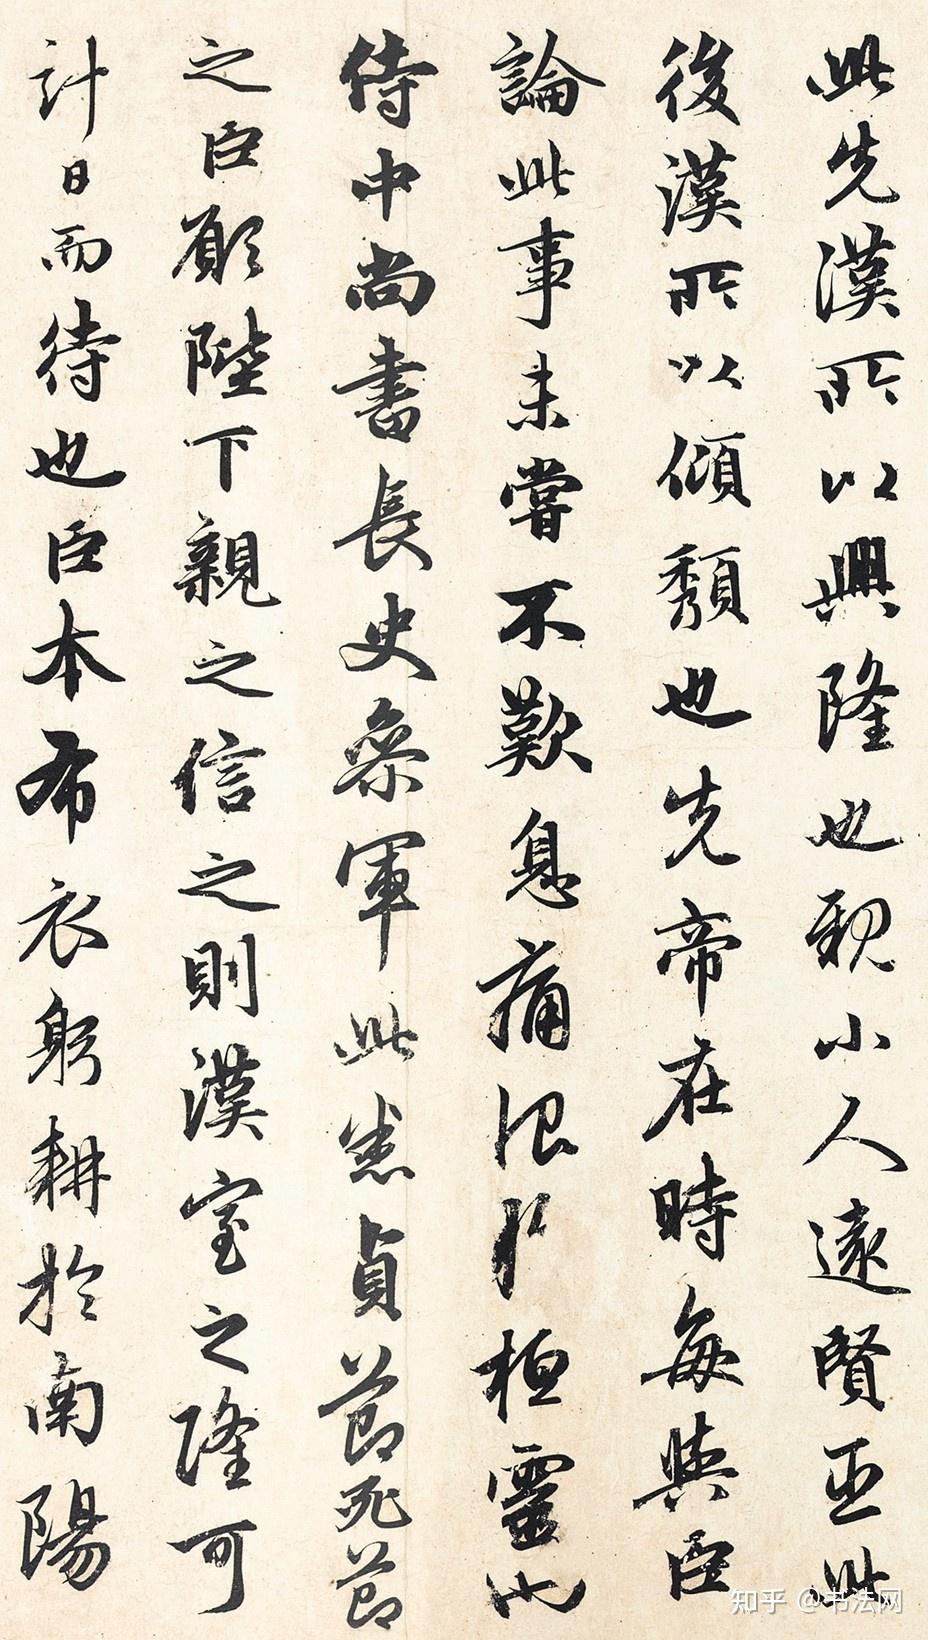 此先漢所以興隆也親小人遠賢臣此
後漢所以傾頽也先帝在時每與臣
論此事未嘗不歎息痛恨於桓靈也
侍中尚書長史參軍此悉貞節死節
之臣願陛下親之信之則漢室之隆可
計日而待也臣本布衣躬耕於南陽
知乎 @书法网